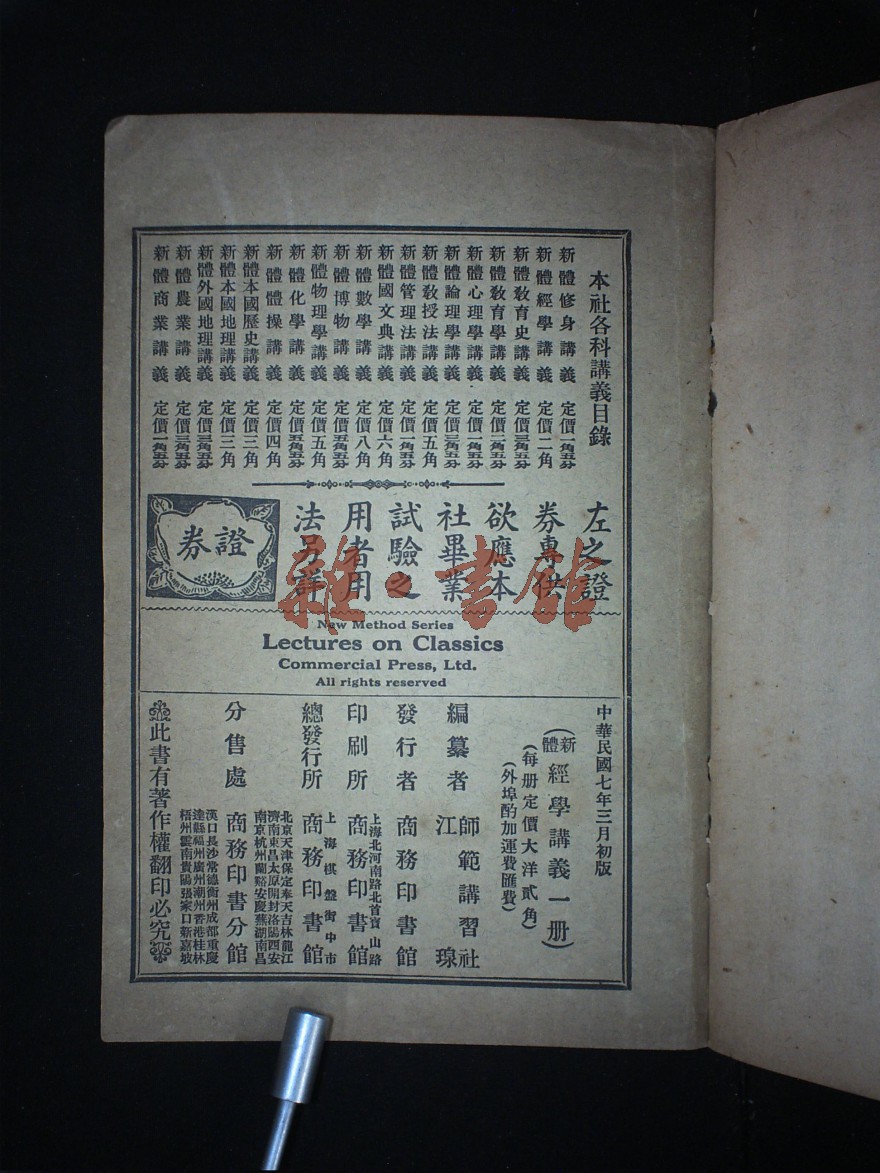 本社各科講義目錄
新體修身講義 定價一角五分
新體經學講義 定價二角
新體教育史講義
新體教育學講義
新體心理學講義
新體論理學講義
新體教授法講義 定價五角
新體管理法講義
新體國文典講義 定價六角
新體數學講義 定價八角
新體博物講義 定價五角五分
新體物理學講義 定價五角
新體化學講義 定價五角五分
新體體操講義 定價四角
新體本國歷史講義 定價三角
新體本國地理講義 定價三角
新體外國地理講義
新體農業講義
新體商業講義 定價一角五分
左之證
券專供
欲應本
社畢業
試驗之
用者用
法另詳
證券
雜·書館
New Method Series
Lectures on Classics
Commercial Press, Ltd.
All rights reserved
中華民國七年三月初版
(新體經學講義一册)
(每册定價大洋貳角)
(外埠酌加運費匯費)
編纂者 師範講習社
江瑔
發行者 商務印書館
印刷所 上海北河南路北首寶山路 商務印書館
總發行所 上海棋盤街中市 商務印書館
分售處 商務印書分館
北京天津保定奉天吉林龍江
濟南東昌太原開封洛陽西安
南京杭州蘭谿安慶蕪湖南昌
漢口長沙常德衡州成都重慶
達縣福州廣州潮州香港桂林
梧州雲南貴陽張家口新嘉坡
此書有著作權翻印必究